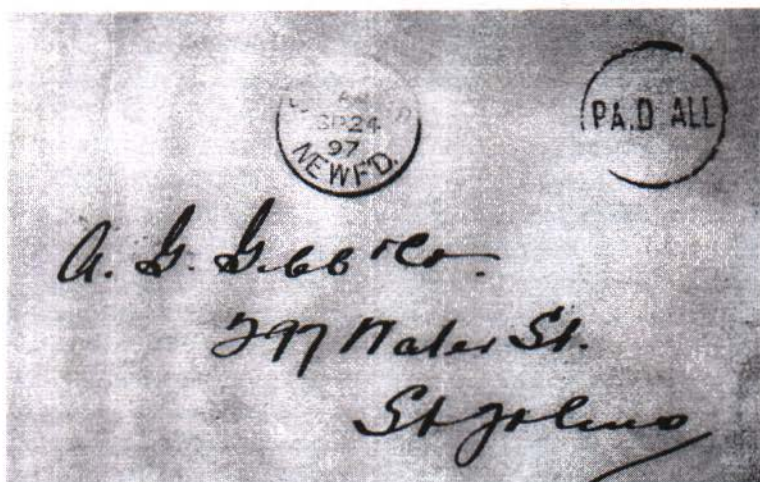 SP 24
97
NEWF'D.
PA.D ALL
A. G. Gibb & Co.
297 Water St.
St Johns